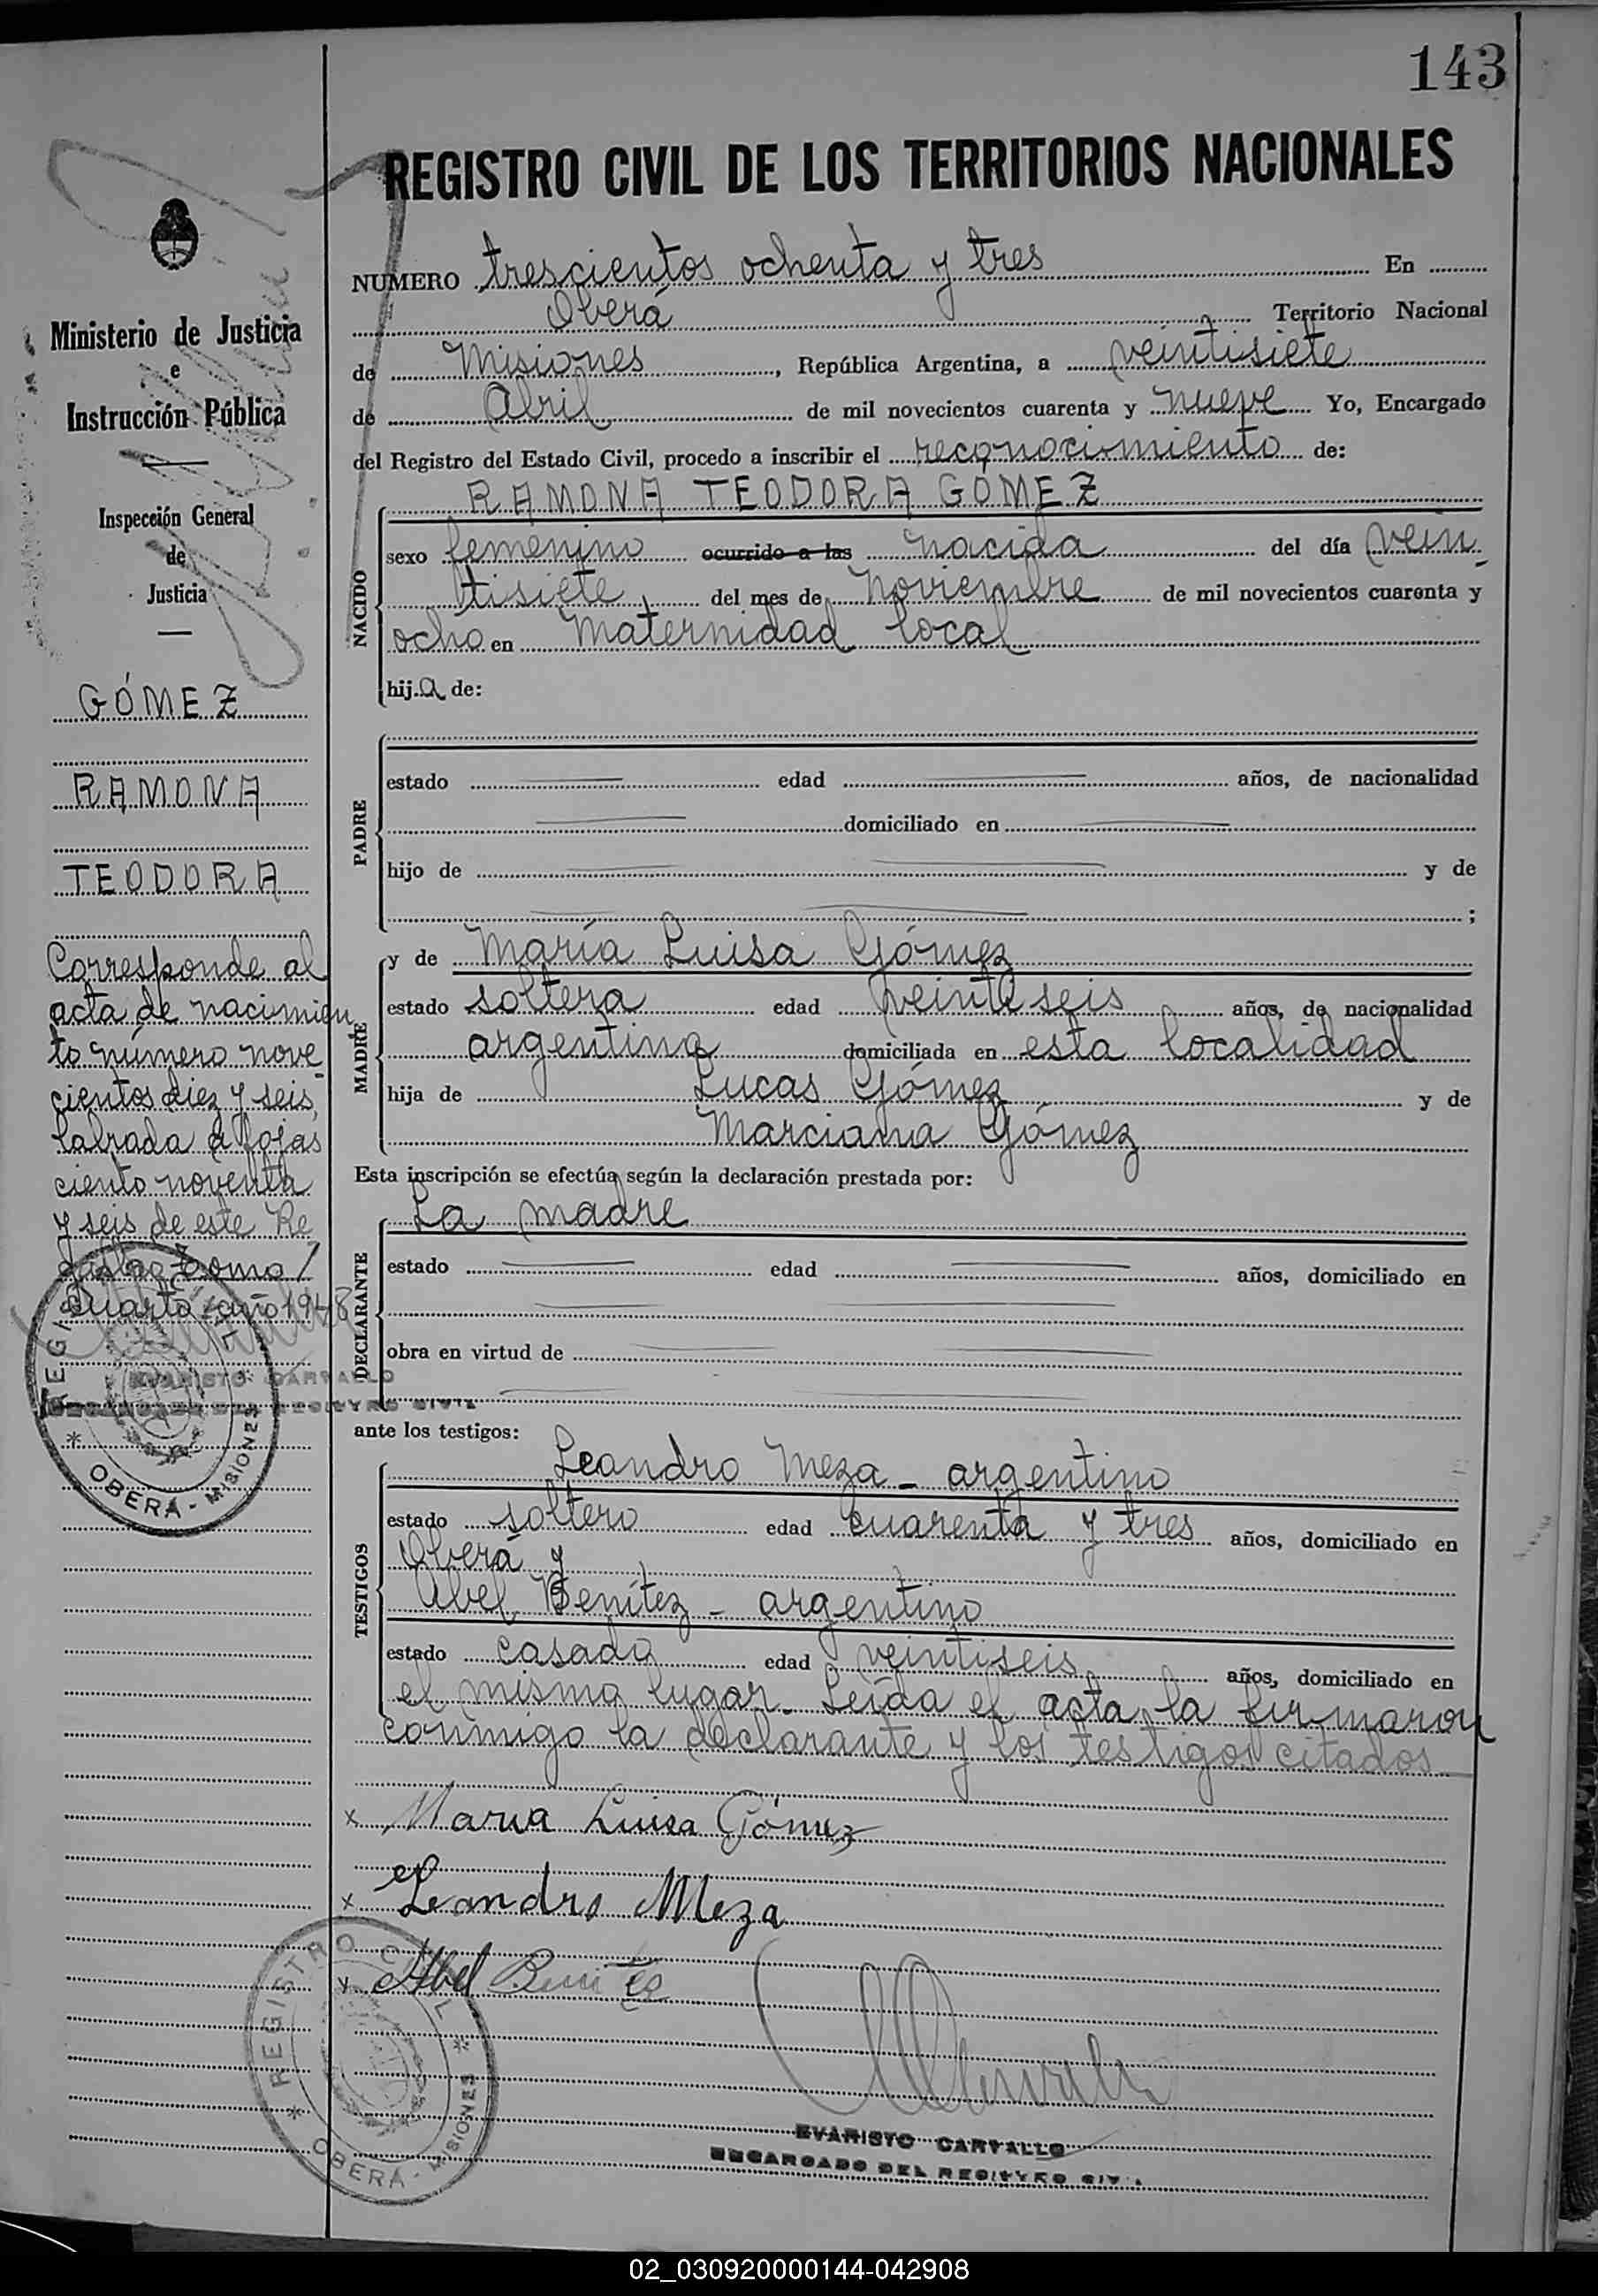 143
REGISTRO CIVIL DE LOS TERRITORIOS NACIONALES
NUMERO trescientos ochenta y tres En
Oberá Territorio Nacional
de Misiones, República Argentina, a veintisiete
de Abril de mil novecientos cuarenta y nueve Yo, Encargado
del Registro del Estado Civil, procedo a inscribir el reconocimiento de:
RAMONA TEODORA GOMEZ
NACIDO
sexo femenino ocurrido a las nacida del día vein
tisiete del mes de Noviembre de mil novecientos cuarenta y
ocho en Maternidad local
hija de:
PADRE
estado edad años, de nacionalidad
domiciliado en
hijo de y de
;
MADRE
y de María Luisa Gómez
estado soltera edad veintiseis años, de nacionalidad
argentina domiciliada en esta localidad
hija de Lucas Gómez y de
Marciana Gómez
Esta inscripción se efectúa según la declaración prestada por:
DECLARANTE
La madre
estado edad años, domiciliado en
obra en virtud de
ante los testigos:
TESTIGOS
Leandro Meza - argentino
estado soltero edad cuarenta y tres años, domiciliado en
Oberá y
Abel Benítez - argentino
estado casado edad veintiseis años, domiciliado en
el mismo lugar. Leída el acta la firmaron
conmigo la declarante y los testigos citados
x Maria Luisa Gómez
x Leandro Meza
x Abel Benites
EVARISTO CARVALLO
ENCARGADO DEL REGISTRO CIVIL
REGISTRO CIVIL
* OBERÁ - MISIONES *
Ministerio de Justicia
e
Instrucción Pública
Inspección General
de
Justicia
GÓMEZ
RAMONA
TEODORA
Corresponde al
acta de nacimien
to número nove
cientos diez y seis,
labrada a fojas
ciento noventa
y seis de este Re
gistro tomo
cuarto año 1948
EVARISTO CARVALLO
ENCARGADO DEL REGISTRO CIVIL
REGISTRO CIVIL
* OBERÁ - MISIONES *
02_030920000144-042908